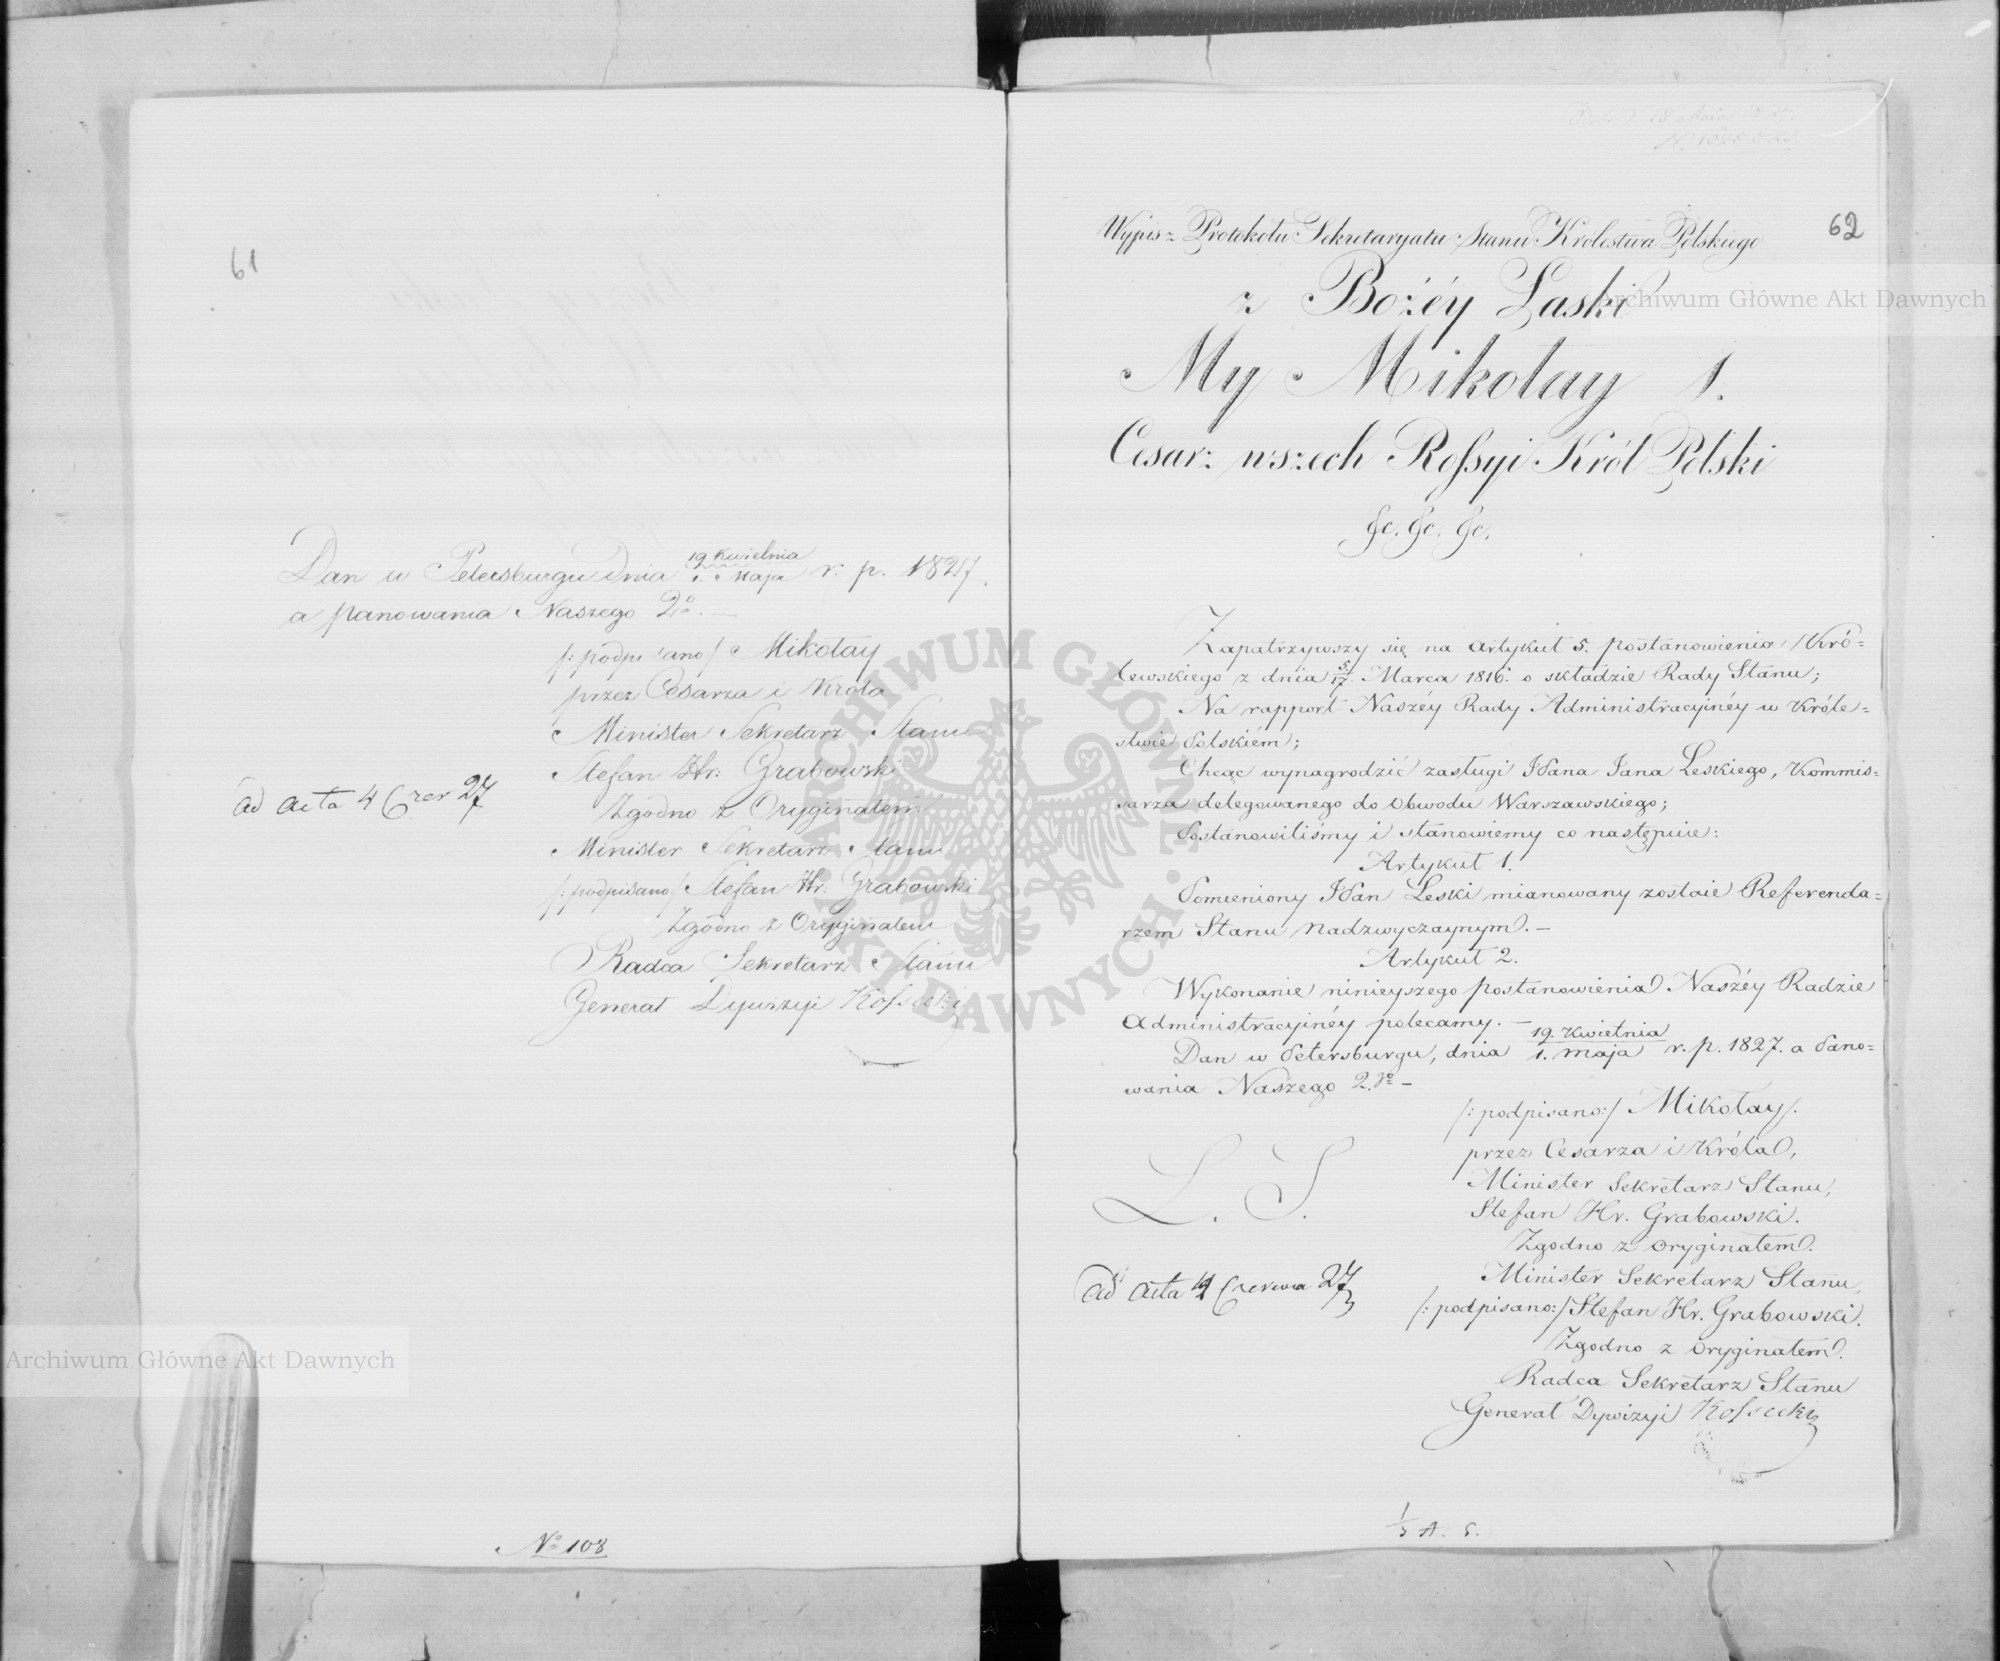 61
Dan w Petersburgu Dnia 19 Kwietnia / 1. Maja r. p. 1827.
a panowania Naszego 2º. —
/: podpisano / Mikołay
przez Cesarza i Króla
Minister Sekretarz Stanu
Stefan Hr: Grabowski
Zgodno z Oryginałem
Minister Sekretarz Stanu
/: podpisano / Stefan Hr: Grabowski
Zgodno z Oryginałem
Radca Sekretarz Stanu
Generał Dywizyi Kossecki
ad acta 4 Czer 27
Nº 108
62
Wypis z Protokołu Sekretaryatu Stanu Królestwa Polskiego
z Bożéy Łaski
My Mikołay 1.
Cesarz wszech Rossyi Król Polski
&c. &c. &c.
Zapatrzywszy się na artykuł 5. postanowienia Kró=
lewskiego z dnia 5/17. Marca 1816. o składzie Rady Stanu;
Na rapport Naszéy Rady Administracyinéy w Króle=
stwie Polskiem;
Chcąc wynagrodzić zasługi Pana Jana Leskiego, Kommis=
sarza delegowanego do Obwodu Warszawskiego;
Postanowiliśmy i stanowiemy co następuie:
Artykuł 1.
Pomieniony Pan Leski mianowany zostaie Referenda=
rzem Stanu nadzwyczaynym. —
Artykuł 2.
Wykonanie ninieyszego postanowienia Naszéy Radzie
Administracyinéy polecamy. —
Dan w Petersburgu, dnia 19. Kwietnia / 1. maja r. p. 1827. a Pano=
wania Naszego 2.go —
/: podpisano:/ Mikołay.
przez Cesarza i Króla,
Minister Sekretarz Stanu,
Stefan Hr. Grabowski.
Zgodno z oryginałem.
Minister Sekretarz Stanu,
/: podpisano:/ Stefan Hr. Grabowski.
Zgodno z oryginałem.
Radca Sekretarz Stanu
Generał Dywizyi Kossecki
L. S.
ad acta 4 Czerwca 27
Archiwum Główne Akt Dawnych
Archiwum Główne Akt Dawnych
ARCHIWUM GŁÓWNE AKT DAWNYCH